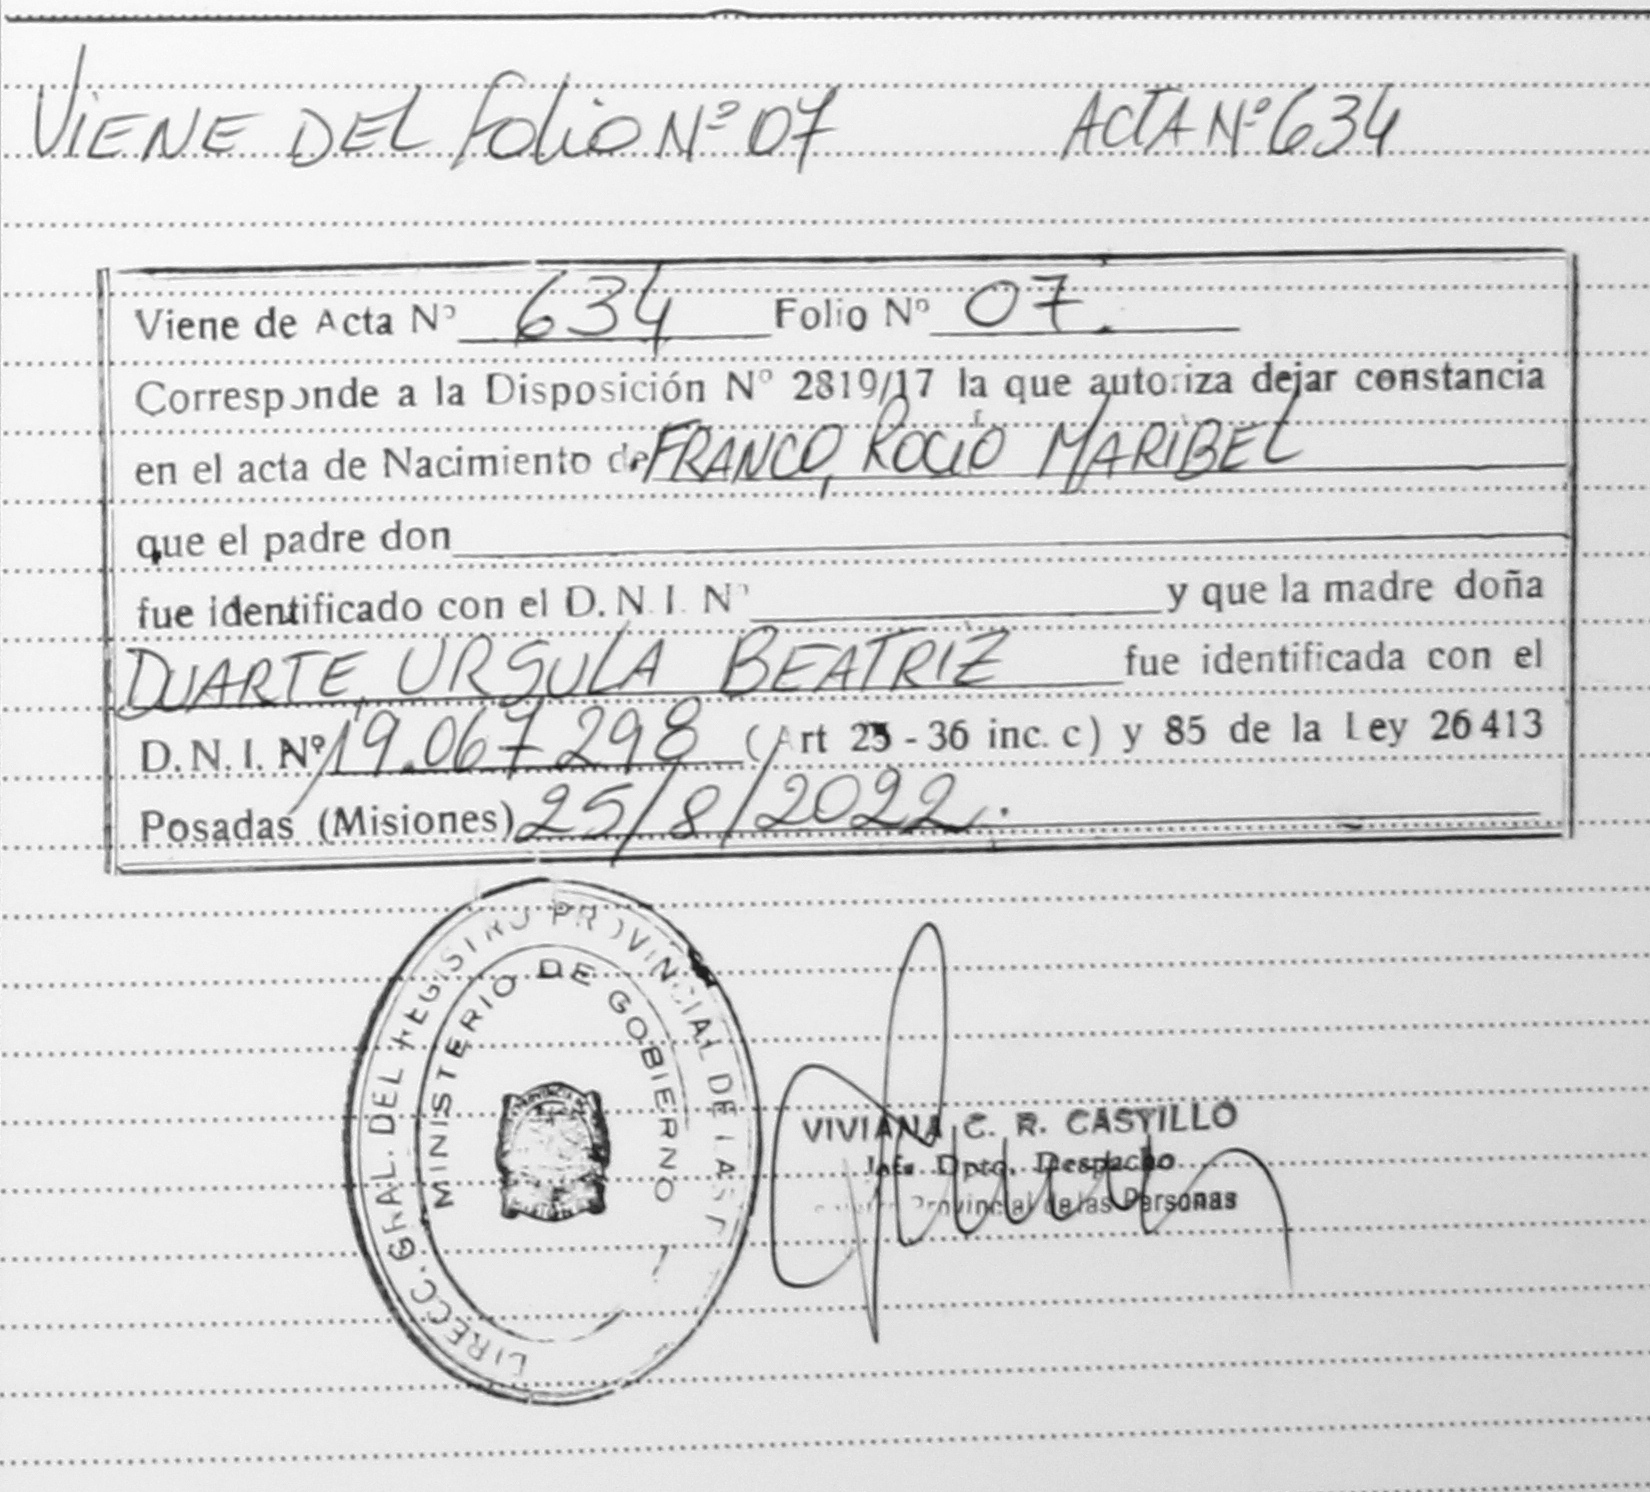 VIENE DEL Folio Nº 07 ACTA Nº 634
Viene de Acta Nº 634 Folio Nº 07.
Corresponde a la Disposición Nº 2819/17 la que autoriza dejar constancia
en el acta de Nacimiento de FRANCO, ROCIO MARIBEL
que el padre don
fue identificado con el D.N.I. Nº y que la madre doña
DUARTE, URSULA BEATRIZ fue identificada con el
D.N.I. Nº 19.067.298 (Art 25 - 36 inc. c) y 85 de la Ley 26413
Posadas (Misiones) 25/8/2022.
DIRECC. GRAL. DEL REGISTRO PROVINCIAL DE LAS
MINISTERIO DE GOBIERNO
VIVIANA C. R. CASTILLO
Jefe Dpto. Despacho
Provincial de las Personas